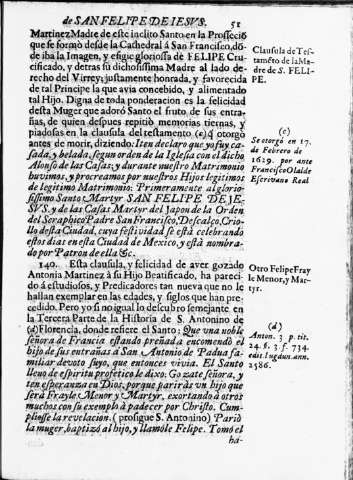 de SAN FELIPE DE IESVS. 51
Martinez Madre de este inclito Santo en la Prosseciõ
que se formò desde la Cathedral á San Francisco, dõ-
de iba la Imagen, y efigie gloriossa de FELIPE Cru-
cificado, y detras su dichosissima Madre al lado de-
recho del Virrey; justamente honrada, y favorecida
de tal Principe la que avia concebido, y alimentado
tal Hijo. Digna de toda ponderacion es la felicidad
desta Muger que adorò Santo el fruto de sus entra-
ñas, de quien despues repitiò memorias tiernas, y
piadosas en la clausula del testamento (c) q̃ otorgò
antes de morir, diziendo: Iten declaro que yo fuy ca-
sada, y belada, segun orden de la Iglesia con el dicho
Alonso de las Casas; y durante nuestro Matrimonio
huvimos, y procreamos por nuestros Hijos legitimos
de legitimo Matrimonio: Primeramente al glorio-
sissimo Santo, y Martyr SAN FELIPE DE JE-
SVS, y de las Casas Martyr del Japon de la Orden
del Seraphico Padre San Francisco, Descalço, Crio-
llo desta Ciudad, cuya festividad se està celebrando
estos dias en esta Ciudad de Mexico, y està nombra-
do por Patron de ella &c.
140. Esta clausula, y felicidad de aver gozado
Antonia Martinez à su Hijo Beatificado, ha pareci-
do à estudiosos, y Predicadores tan nueva que no le
hallan exemplar en las edades, y siglos que han pre-
cedido. Pero yo si no igual lo descubro semejante en
la Tercera Parte de la Historia de S. Antonino de
(d) Florencia, donde refiere el Santo: Que vna noble
señora de Francia estando preñada encomendò el
hijo de sus entrañas a San Antonio de Padua fa-
miliar devoto suyo, que entonces vivia. El Santo
lleno de espiritu profetico le dixo: Gozate, señora, y
ten esperanza en Dios, porque pariràs vn hijo que
serà Frayle Menor, y Martyr, exortando à otros
muchos con su exemplo à padecer por Christo. Cum-
pliosse la revelacion. (prosigue S. Antonino) Pariò
la muger, baptizò al hijo, y llamòle Felipe. Tomò el
ha-
Clausula de Tes-
tamẽto de la Ma-
dre de S. FELI-
PE.
(c)
Se otorgò en 17.
de Febrero de
1629. por ante
Francisco Olalde
Escrivano Real
Otro Felipe Fray
le Menor, y Mar-
tyr.
(d)
Anton. 3 p. tit.
24. §. 3 f. 734.
edit. lugdun. ann.
1586.